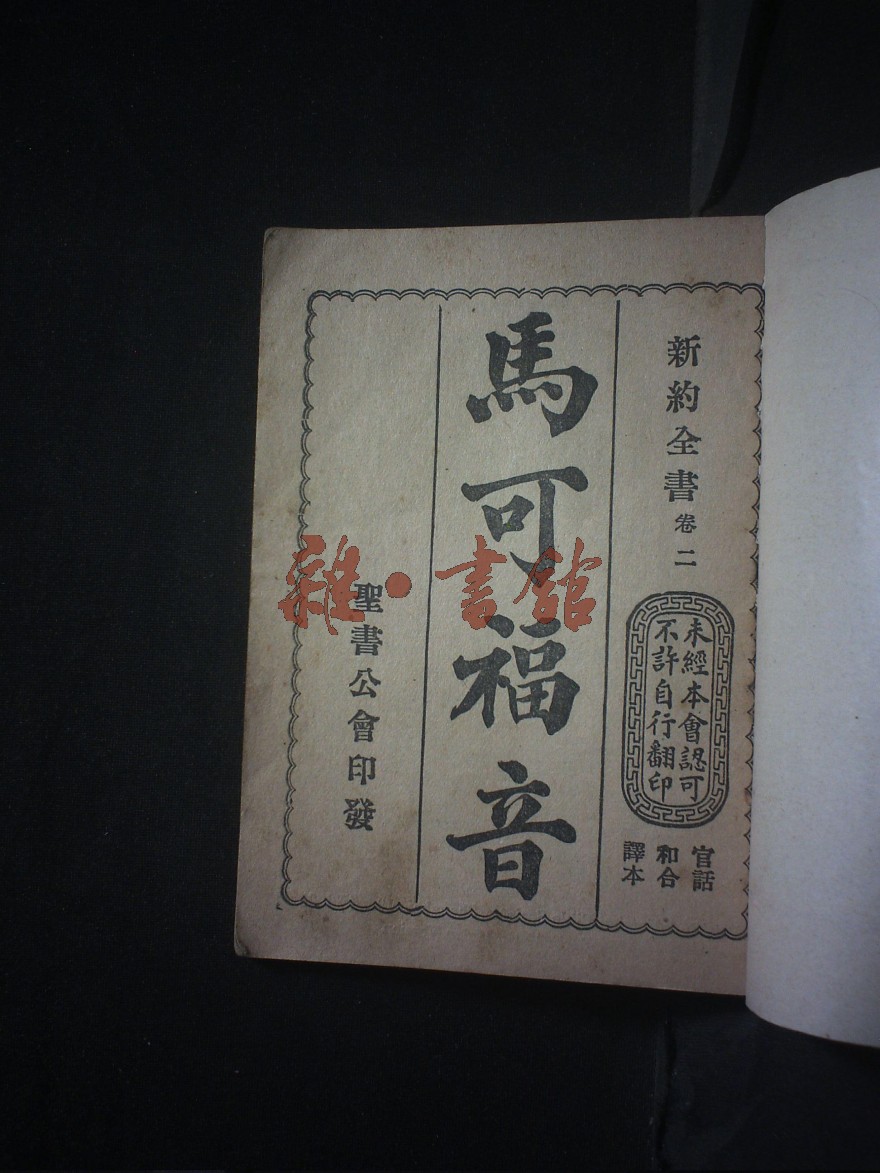 新約全書卷二
未經本會認可
不許自行翻印
官話
和合
譯本
馬可福音
聖書公會印發
雜·書館